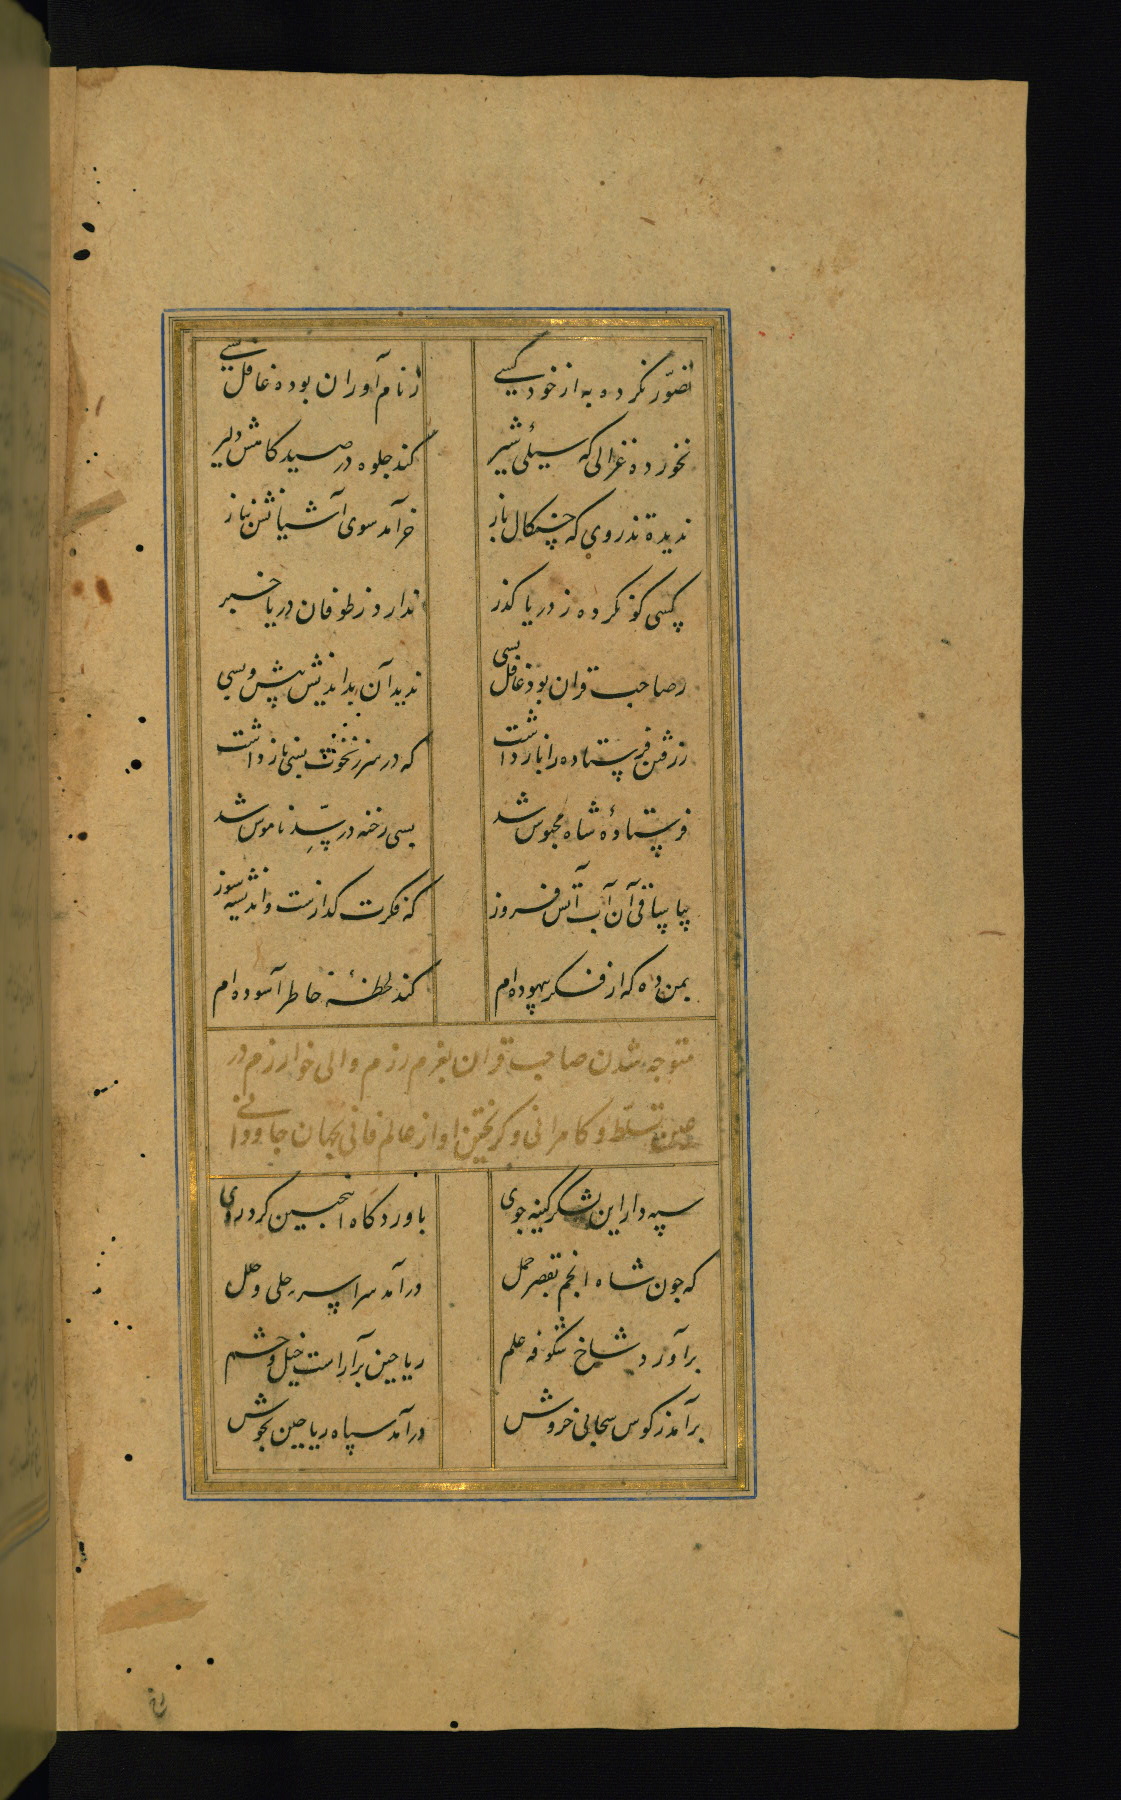 تصوّر نکرده به از خود کسی	ز نام آوران بوده غافل بسی
نخورده غزالی که سیلئ شیر	کند جلوه در صیدکامش دلیر
ندیده تذروی که چنکال باز	خرامد سوی آشیانش بناز
کسی کو نکرده ز دریا کذر	ندارد ز طوفان دریا خبر
ز صاحب قران بود غافل بسی	ندید آن بداندیش پیش و پسی
ز رفتن فرستاده را باز داشت	که در سر ز نخوت بسی ناز داشت
فرستادهٔ شاه محبوس شد	بسی رخنه در سدّ ناموس شد
بیا ساقی آن آب آتش فروز	که فکرت کدازست و اندیشه سوز
بمن ده که از فکر بیهوده ام	کند لحظهٔ خاطر آسوده ام
متوجه شدن صاحب قران بعزم رزم والی خوارزم در
عین تسلّط و کامرانی و کریختن او از عالم فانی بجهان جاودانی
سپه دار این لشکر کینه جوی	باوردکاه اینچنین کرد روی
که چون شاه انجم بقصر حمل	درآمد سراسر حلی و حلل
برآورد شاخ شکوفه علم	ریاحین برآراست خیل و حشم
برآمد ز کوس سحابی خروش	درآمد سپاه ریاحین بجوش